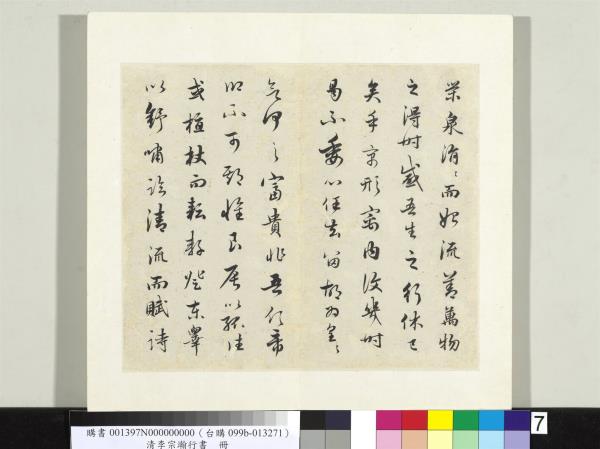 榮泉涓〻而始流善萬物
之得時感吾生之行休已
矣乎寓形寓內復幾時
曷不委心任去留胡為遑〻
欲何之富貴非吾願帝
鄉不可期懷良辰以孤往
或植杖而耘耔登東皋
以舒嘯臨清流而賦詩
7
購書 001397N000000000（台購 099b-013271）
清李宗瀚行書 冊